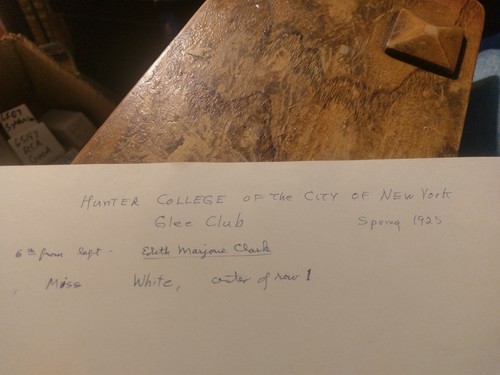 6SG7
6SN7
RCA
HUNTER COLLEGE OF the CITY OF NEW YORK
Glee Club Spring 1925
6th from left - Edith Marjorie Clark
Miss White, center of row 1